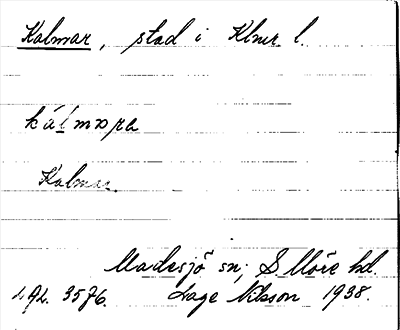 Kalmar, stad i Klmr l.
kálmɔra
Kalmar
Madesjö sn; S. Möre hd.
LGL. 3576. Lage Nilsson 1938.